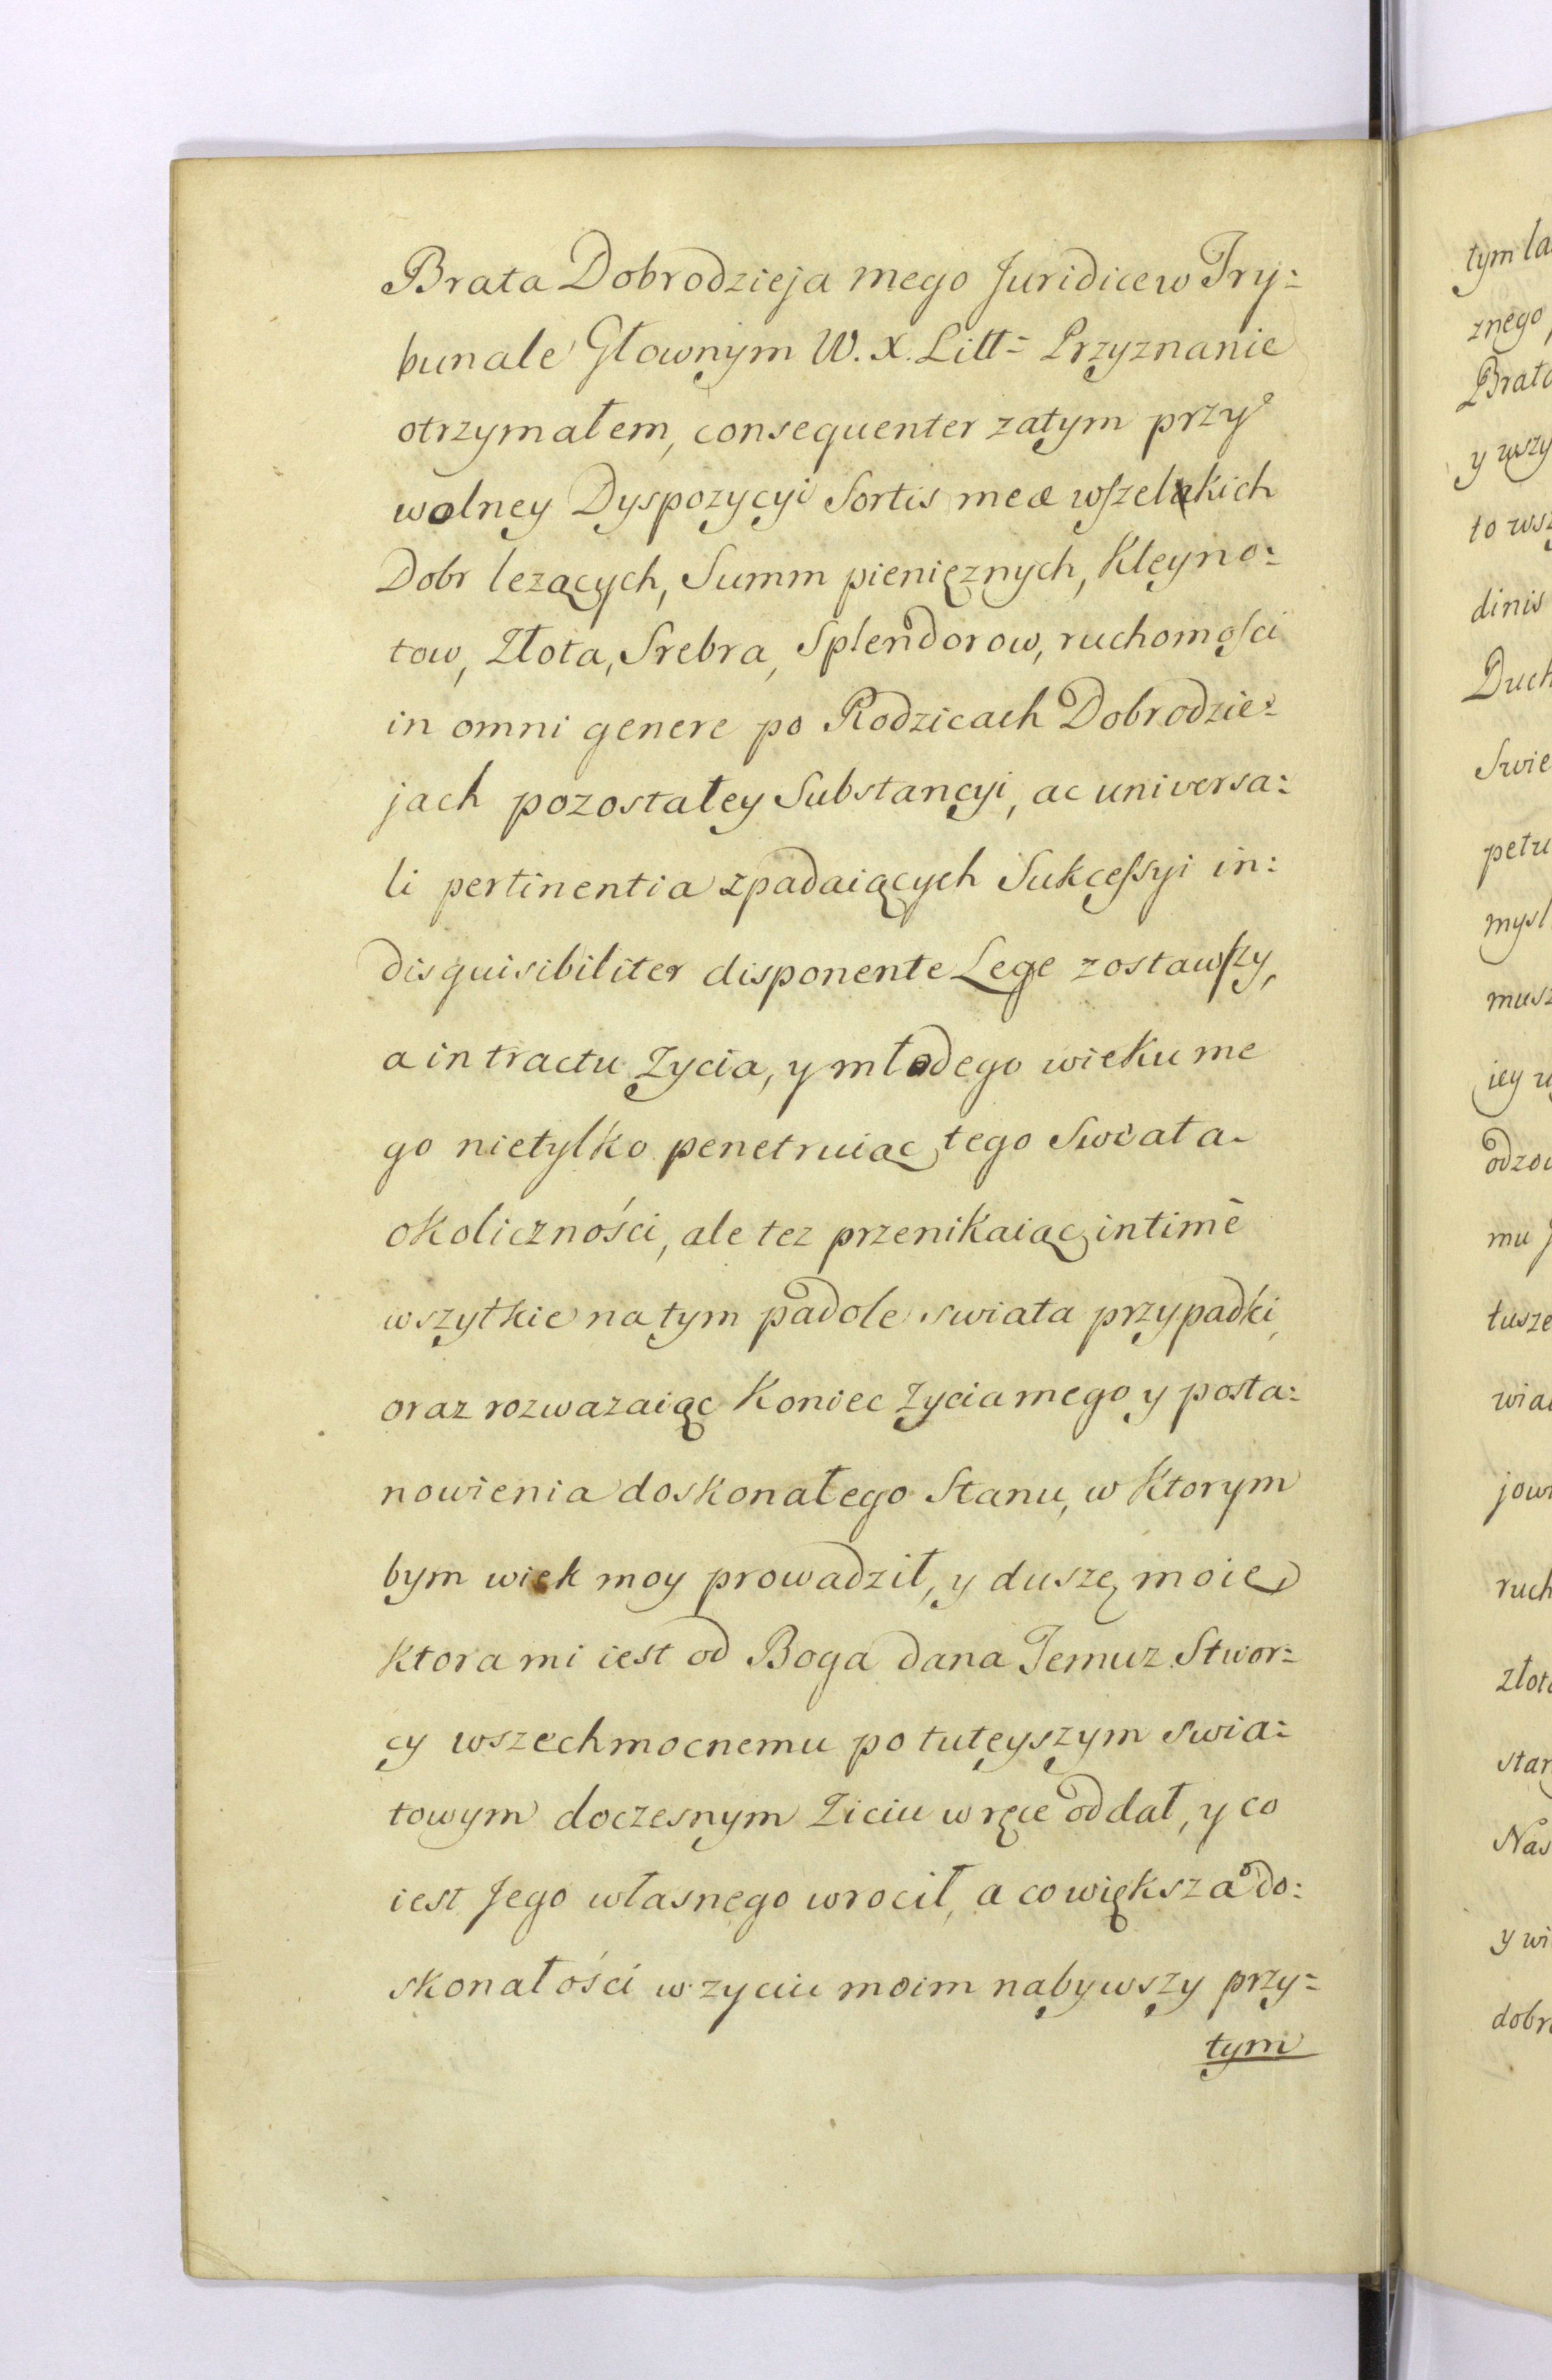 Brata Dobrodzieja mego Juridice w Try=
bunale Głownym W. X. Litt= Przyznanie
otrzymałem, consequenter zatym przy
wolney Dyspozycyi Sortis meæ wszelakich
Dobr lezących, Summ pienięznych, Kleyno=
tow, Złota, Srebra, Splendorow, ruchomości
in omni genere po Rodzicach Dobrodzie=
jach pozostałey Substancyi, ac universa=
li pertinentia zpadaiących Sukcessyi in=
disquisibiliter disponente Lege zostawszy,
a in tractu Zycia, y młodego wieku me
go nietylko penetruiąc tego Swiata
okoliczności, ale tez przenikaiąc intimē
wszytkie na tym padole swiata przypadki,
oraz rozwazaiąc Koniec Zycia mego y posta=
nowienia doskonałego Stanu, w Ktorym
bym wiek moy prowadził, y duszę moię
Ktora mi iest od Boga dana Temuz Stwor=
cy wszechmocnemu po tuteyszym swia=
towym doczesnym Ziciu w ręce oddał, y co
iest Jego własnego wrocił, a co większa do=
skonałości w zyciu moim nabywszy przy=
tym
tym la
znego,
Brata
y wszy
to wsz
dinis
Duch
Swie
petu
mysl
musz
iey w
odzou
mu J
tusze
wiad
jow
ruch
złot
star
Nas
y wi
dobr